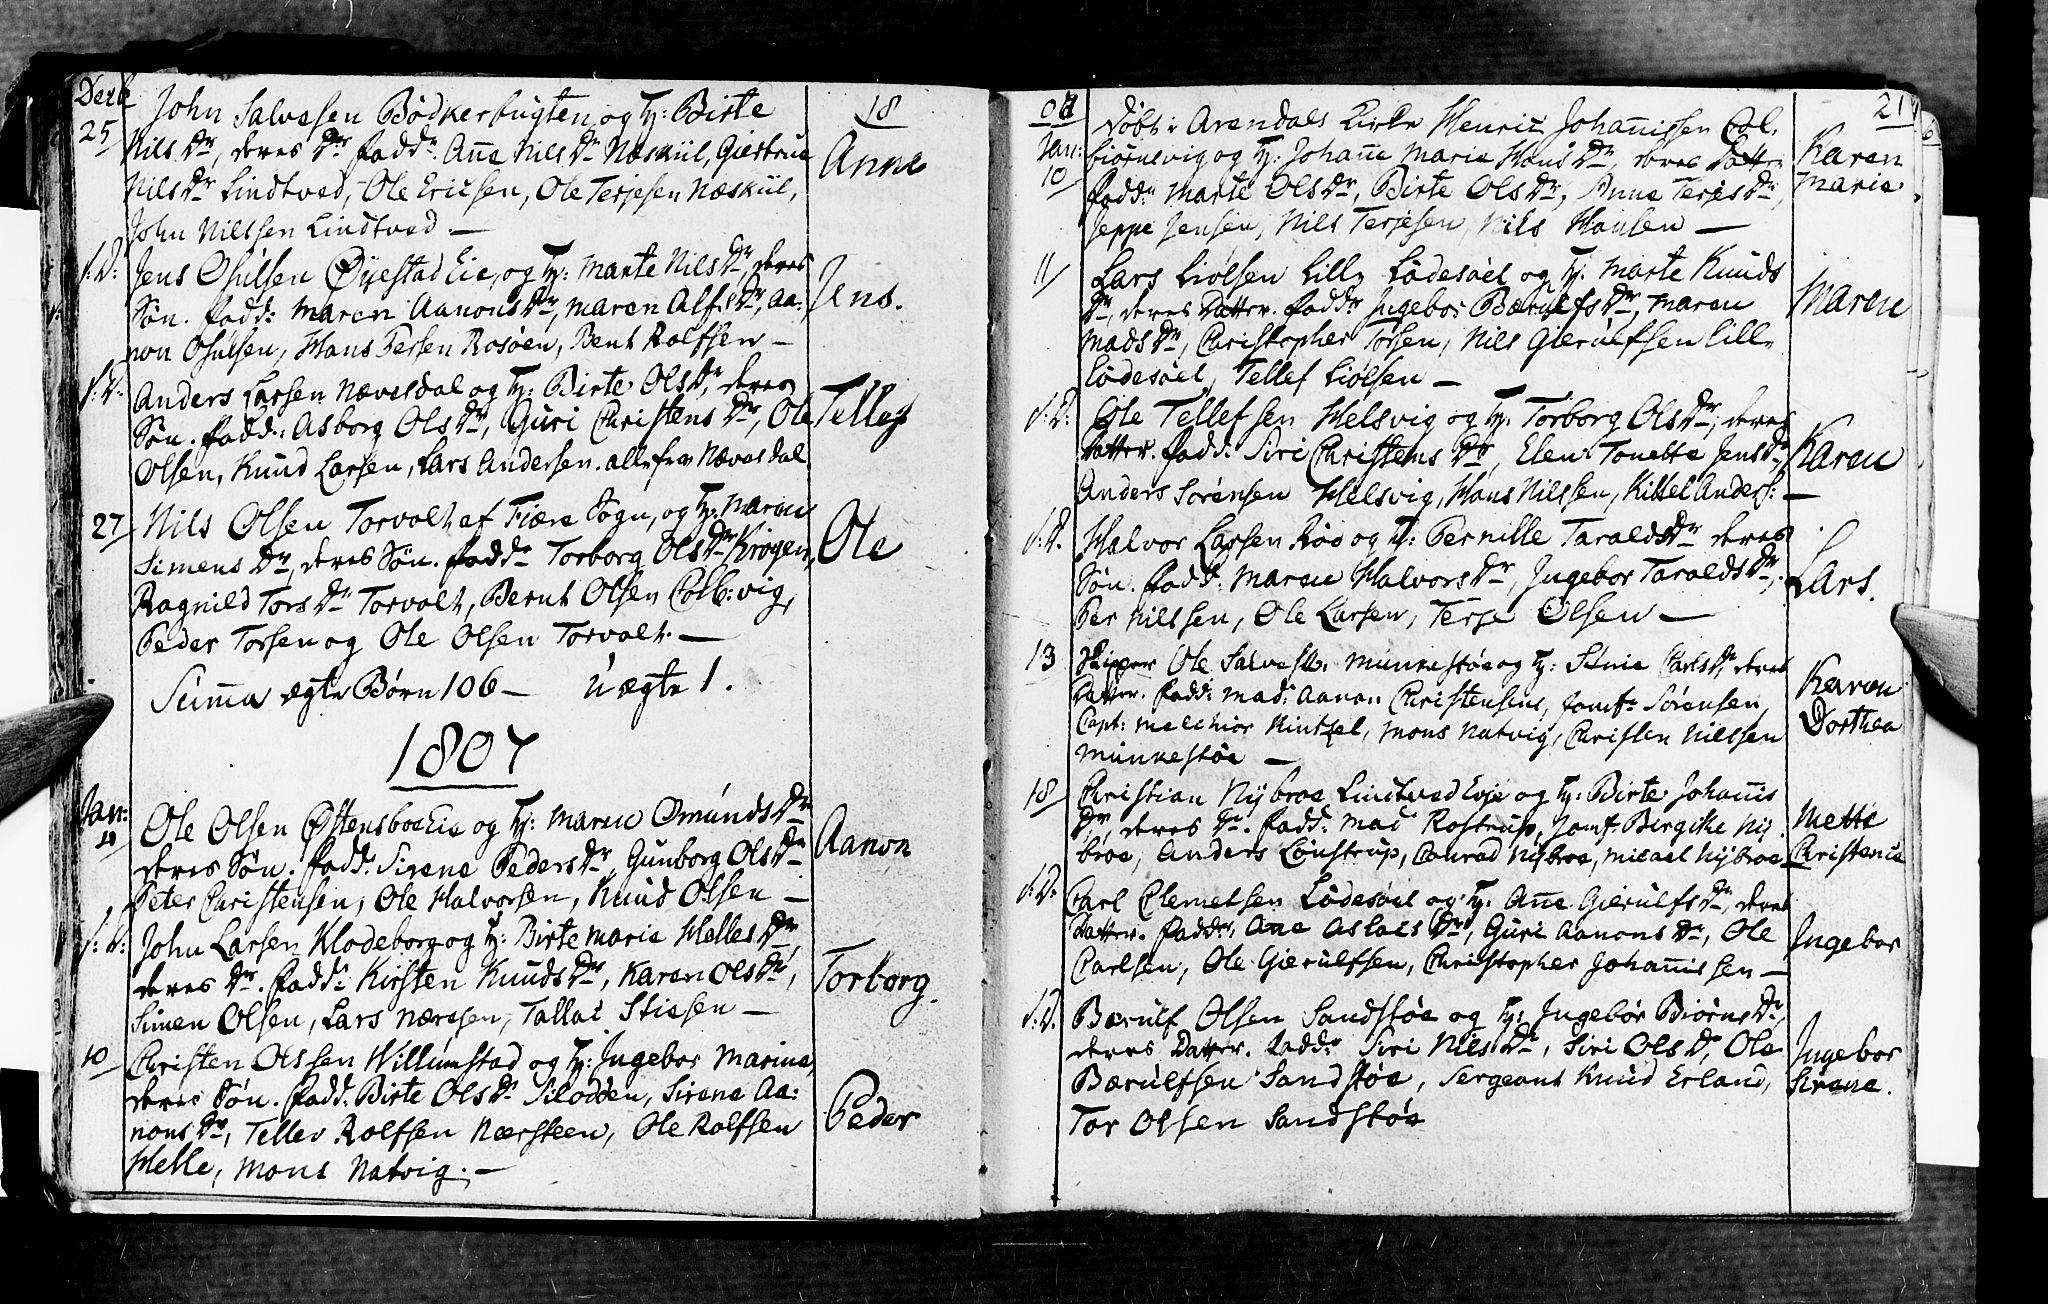 Decb
18
25
John Salvesen Bödkerbugten og H: Birte
Nils Dr, deres Dr fadd: Anne Nils Dr Næskiil, Giertrue
Anne
Nils Dr Lindtved, Ole Ericsen, Ole Terjesen Næskiil,
John Nilssen Lindtved —
S:D:
Jens Osulsen Øyestad Eie, og H: Marte Nils Dr, deres
Jens.
Søn. fadd: Maren Aanons Dr, Maren Alfs Dr, Aa=
non Osulsen, Hans Persen Rosøen, Bent Rolfsen —
S:D:
Anders Larsen Nævesdal og H: Birte Ols Dr, deres
Tellef
Søn. fadd: Asborg Ols Dr, Guri Christens Dr, Ole
Olsen, Knud Larsen, Lars Andersen. alle fra Nævesdal
27
Nils Olsen Torvolt af Fiære Sogn, og H: Maren
Ole
Simens Dr, deres Søn. fadd: Torborg Ols Dr Krogen,
Ragnild Tors Dr Torvolt, Bernt Olsen Colb:vig,
Peder Torsen og Ole Olsen Torvolt. —
Summa ægte Børn 106 — Uægte 1.
1807
Jan:
Ole Olsen Østensboe Eie og H: Maren Omunds Dr
Aanon
deres Søn. fadd: Sirene Peders Dr, Gunborg Ols Dr
Peter Christensen, Ole Halvorsen, Knud Olsen —
S:D:
John Larsen Klodeborg og H: Birte Marie Helles Dr,
Torborg.
deres Dr. fadd: Kirsten Knuds Dr, Karen Ols Dr,
Simen Olsen, Lars Nærssen, Tallac Stiesen —
10
Christen Olssen Willumstad og H: Ingebor Marine,
Peder
deres Søn. fadd: Birte Ols Dr Slodden, Sirene Aa=
nons Dr, Tellev Rolfsen Nærsteen, Ole Rolfsen
Helle, Mons Natvig. —
21
Jan:
10
Døbt i Arendals Kirke Henric Johannissen Col=
Karen
Marie
biørnsvig og H: Johanne Marie Hans Dr, deres Datter
fadd: Marte Ols Dr, Birte Ols Dr, Anne Terjes Dr,
Jeppe Jensen, Nils Terjesen, Nils Hansen —
11
Lars Liølsen Lille Lødesøel og H: Marte Knuds
Maren
Dr, deres Datter. fadd: Ingebor Bærulfs Dr, Maren
Mads Dr, Christopher Torsen, Nils Gierulfsen Lill
Lødesøel, Tellef Liølsen —
S:D:
Ole Tellefsen Helsvig og H: Torborg Ols Dr, deres
Karen
Datter. fadd: Siri Christens Dr, Elen Tonette Jens Dr
Anders Sørensen Helsvig, Hans Nilssen, Kittel Anders: —
S:D.
Halvor Larsen Røo og H: Pernille Taralds Dr deres
Lars.
Søn. fadd: Maren Halvors Dr, Ingebor Taralds Dr,
Per Nilssen, Ole Larsen, Terje Olsen —
13
Skipper Ole Salves: Munkestøe og H: Sinie Carls Dr, deres
Karen
Dorthea
Datter. fadd: Mad: Aanon Christensens, Jomf: Sørensen,
Capt: Melchior Hintzel, Mons Natvig, Christen Nilssen
Munkestøe —
18
Christian Nybroe Lindtved Eye og H: Birte Johannis
Mette
Christenie
Dr, deres Dr. fadd: Mad Rostrup, Jomf: Birgitte Ny=
broe, Anders Lönstrup, Conrad Nybroe, Micael Nybroe
S:D:
Carl Clemetsen Lødesøel og H: Anne Gierulfs Dr, deres
Ingebor
Datter. fadd: Ane Aslacs Dr, Guri Aanons Dr, Ole
Carlsen, Ole Gierulfsen, Christopher Johannissen —
S:D.
Bærulf Olsen Sandstøe og H: Ingebor Biørns Dr,
Ingebor
Sirene.
deres Datter. fadd: Siri Nils Dr, Siri Ols Dr, Ole
Bærulfsen Sandstøe, Sergeant Knud Erland,
Tor Olsen Sandstøe